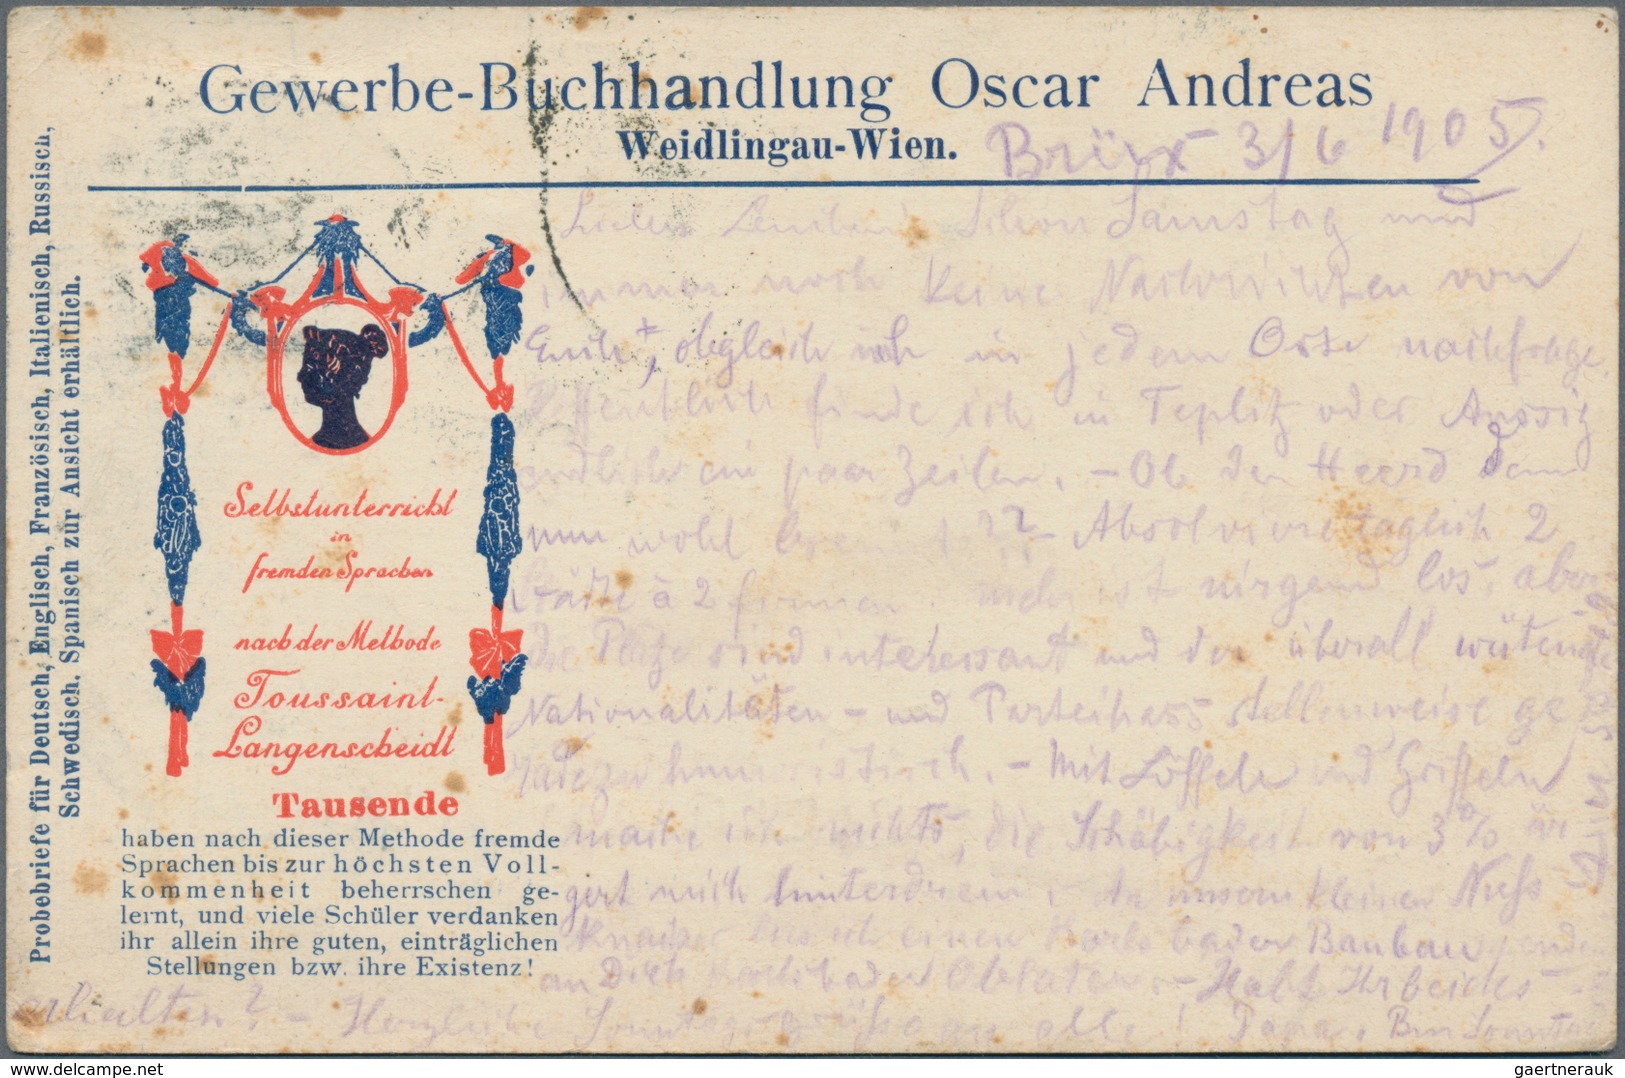 Gewerbe-Buchhandlung Oscar Andreas
Weidlingau-Wien.
Brüx 3/6 1905.
Probebriefe für Deutsch, Englisch, Französisch, Italienisch, Russisch,
Schwedisch, Spanisch zur Ansicht erhältlich.
Selbstunterricht
in
fremden Sprachen
nach der Methode
Toussaint-
Langenscheidt
Tausende
haben nach dieser Methode fremde
Sprachen bis zur höchsten Voll-
kommenheit beherrschen ge-
lernt, und viele Schüler verdanken
ihr allein ihre guten, einträglichen
Stellungen bzw. ihre Existenz!
Schon Samstag und
immer noch keine Nachrichten von
Euch, obgleich ich in jedem Orte nachfrage.
Hoffentlich finde ich in Teplitz oder Aussig
endlich ein paar Zeilen. - Ob der Heerd denn
nun wohl - Absolviere täglich 2
Städte à 2 Firmen. ist nirgend los, aber
die sind interessant und der überall wütende
Nationalitäten- und Parteihass stellenweise ge
radezu humoristisch. - Mit Löffeln und Griffeln
mache ich nichts, die Schäbigkeit von 3% är
gert mich hinterdrein. unserm kleinen Nuss
knacker einen Karlsbader
an Dich Karlsbader Oblaten. - Habt Ihr beides
erhalten? - Herzliche Sonntagsgrüsse an alle! Papa. Bin Sonntag
gaertnerauk @ delcampe.net